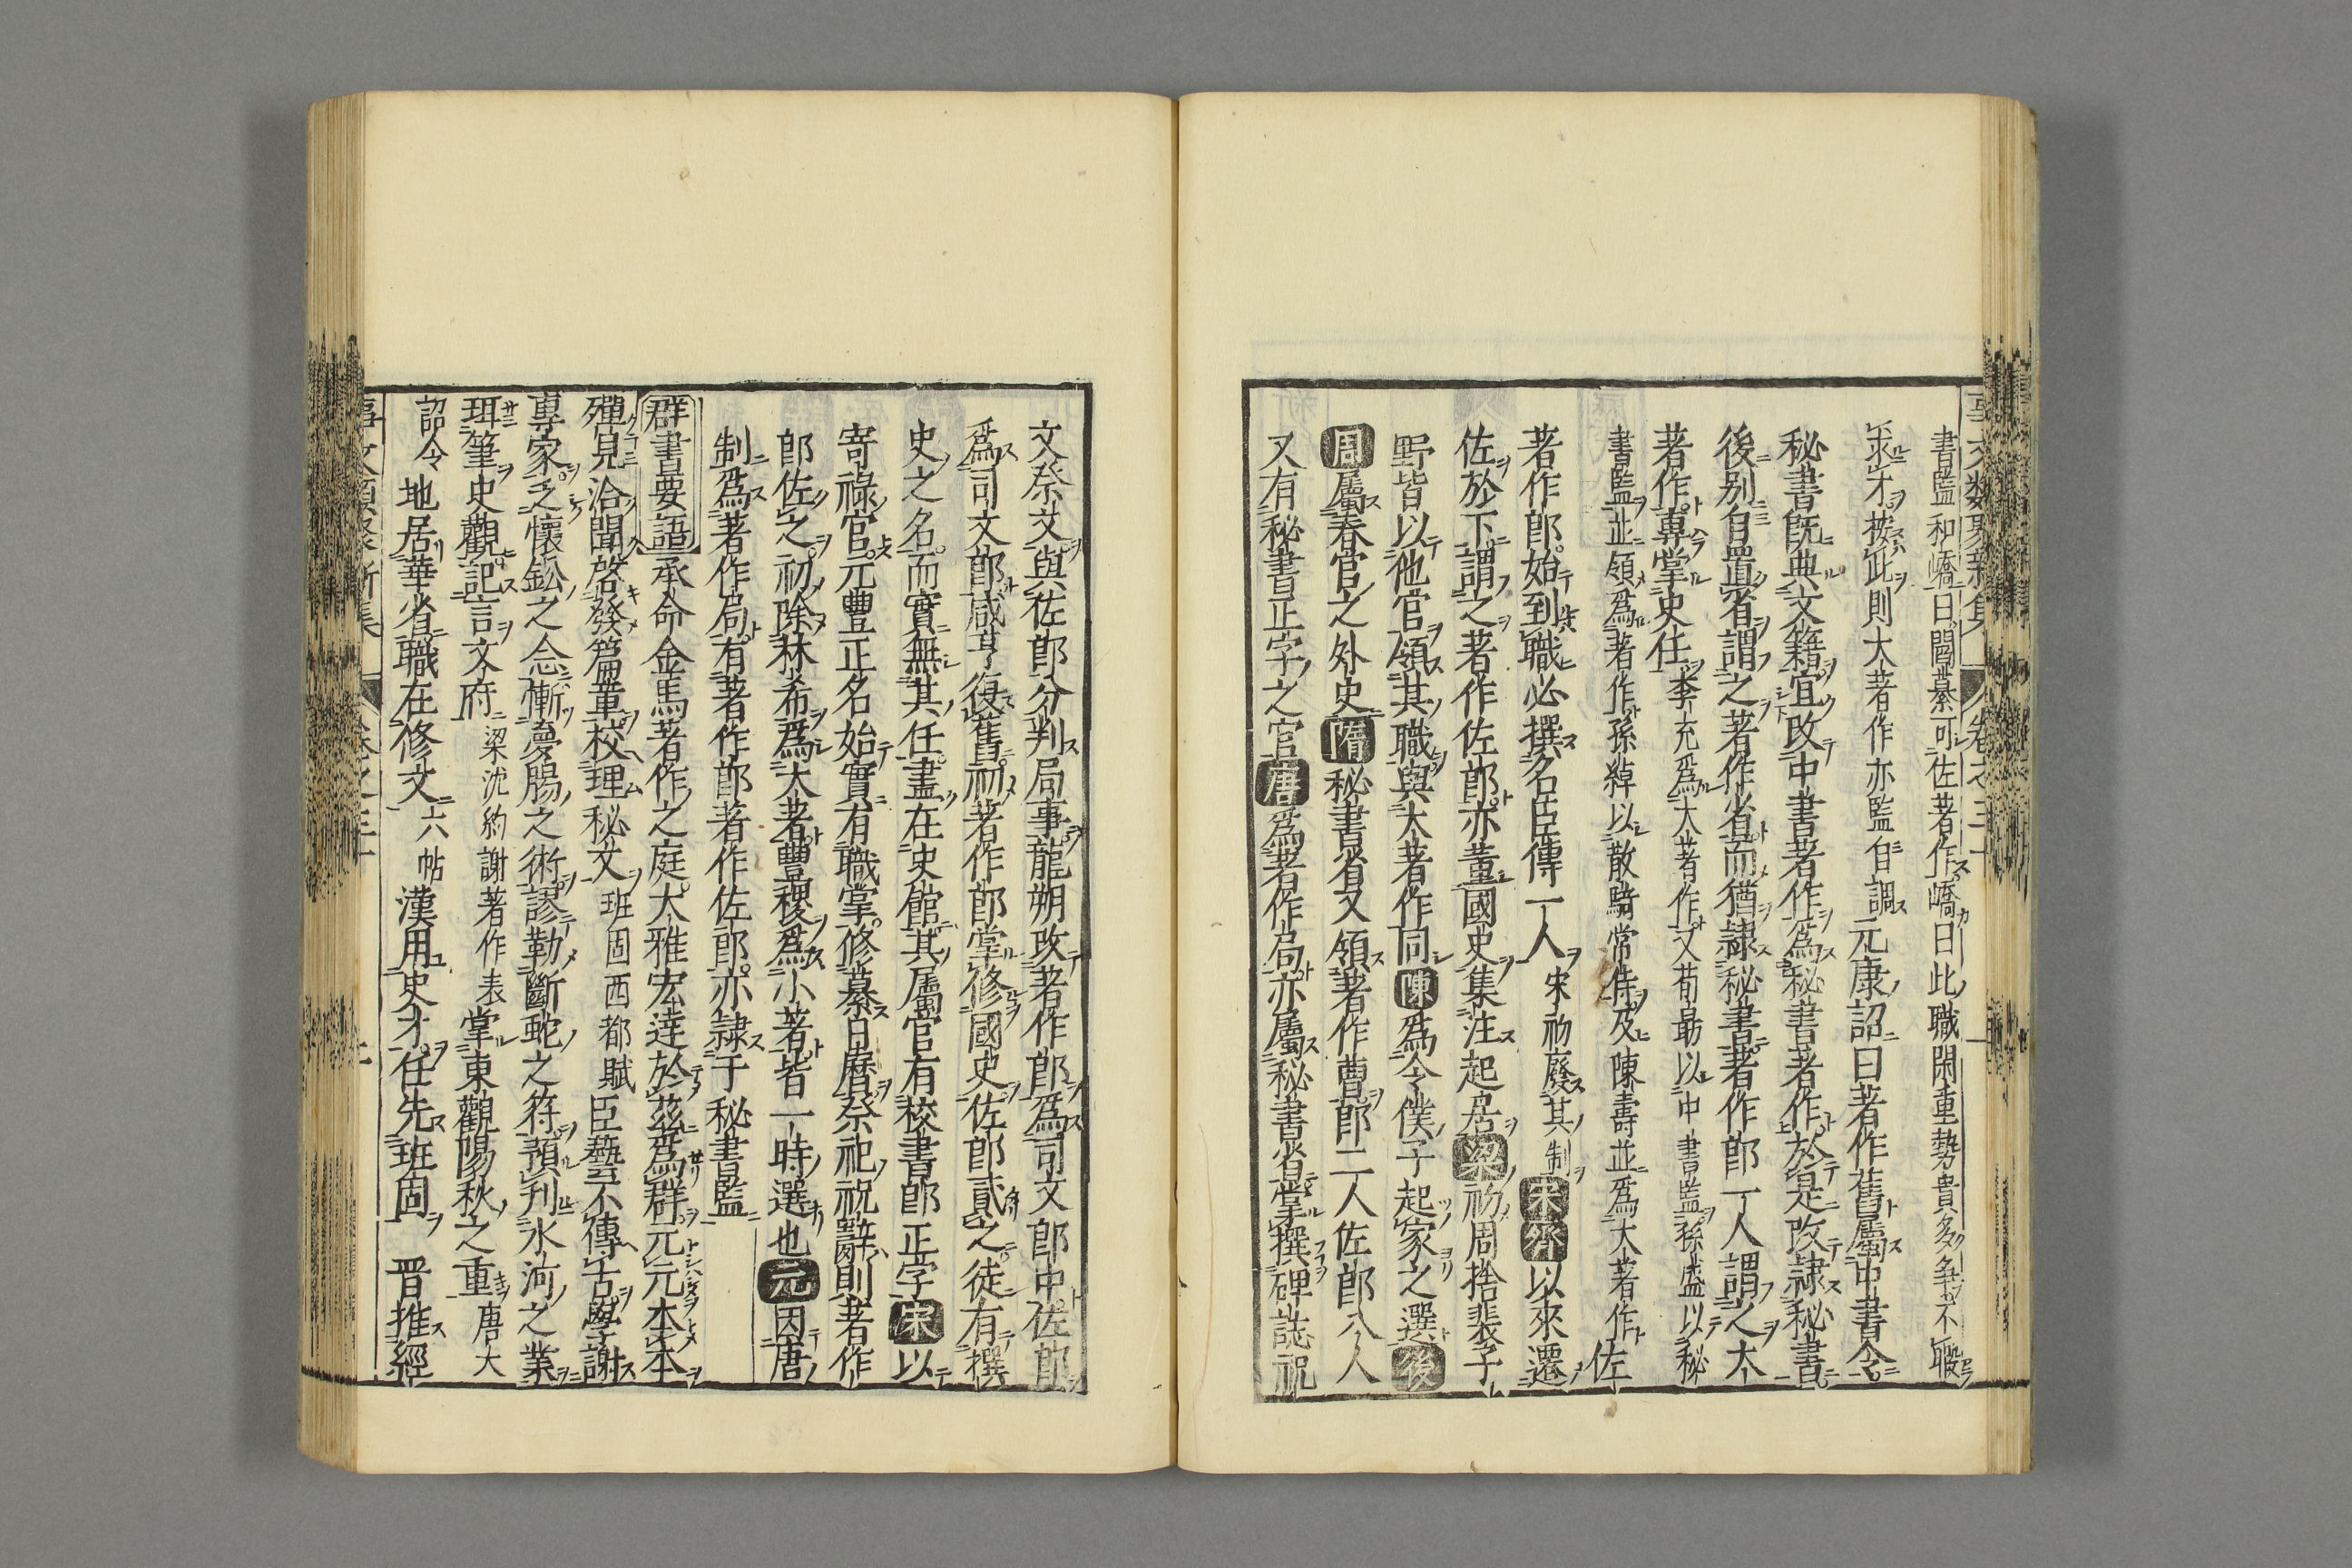 書監和嶠曰閻纂可佐著作嶠曰此職閑重勢貴多爭不暇
求才按此則大著作亦監自調元康詔曰著作舊屬中書令
秘書旣典文籍宜改中書著作爲秘書著作於是改隷秘書
後別自置省謂之著作省而猶隷秘書著作郎一人謂之大
著作專掌史任李充爲大著作又荀勗以中書監孫盛以秘
書監並領爲著作孫綽以散騎常侍及陳壽並爲大著作佐
著作郎始到職必撰名臣傳一人宋初廢其制宋齊以來遷
佐於下謂之著作佐郎亦董國史集注起居梁初周捨裴子
野皆以他官領其職與大著作同陳爲令僕子起家之選後
周屬春官之外史隋秘書省又領著作曹郎二人佐郎八人
又有秘書正字之官唐爲著作局亦屬秘書省掌撰碑誌祝
文祭文與佐郎分判局事龍朔改著作郎爲司文郎中佐郎
爲司文郎咸亨復舊初著作郎掌修國史佐郎貳之徒有撰
史之名而實無其任盡在史館其屬官有校書郎正字宋以
寄祿官元豐正名始實有職掌修纂日曆祭祀祝辭則著作
郎佐之初除林希爲大著豐稷爲小著皆一時選也元因唐
制爲著作局有著作郎著作佐郎亦隷于秘書監
群書要語承命金馬著作之庭大雅宏達於茲爲群元元本本
殫見洽聞啓發篇章校理秘文班固西都賦臣藝不傳古學謝
專家乏懷鈆之念慚夢腸之術謬勒斷蛇之符預刋氷河之業
珥筆史觀記言文府梁沈約謝著作表掌東觀陽秋之重唐大
詔令地居華省職在修文六帖漢用史才任先班固晋推經